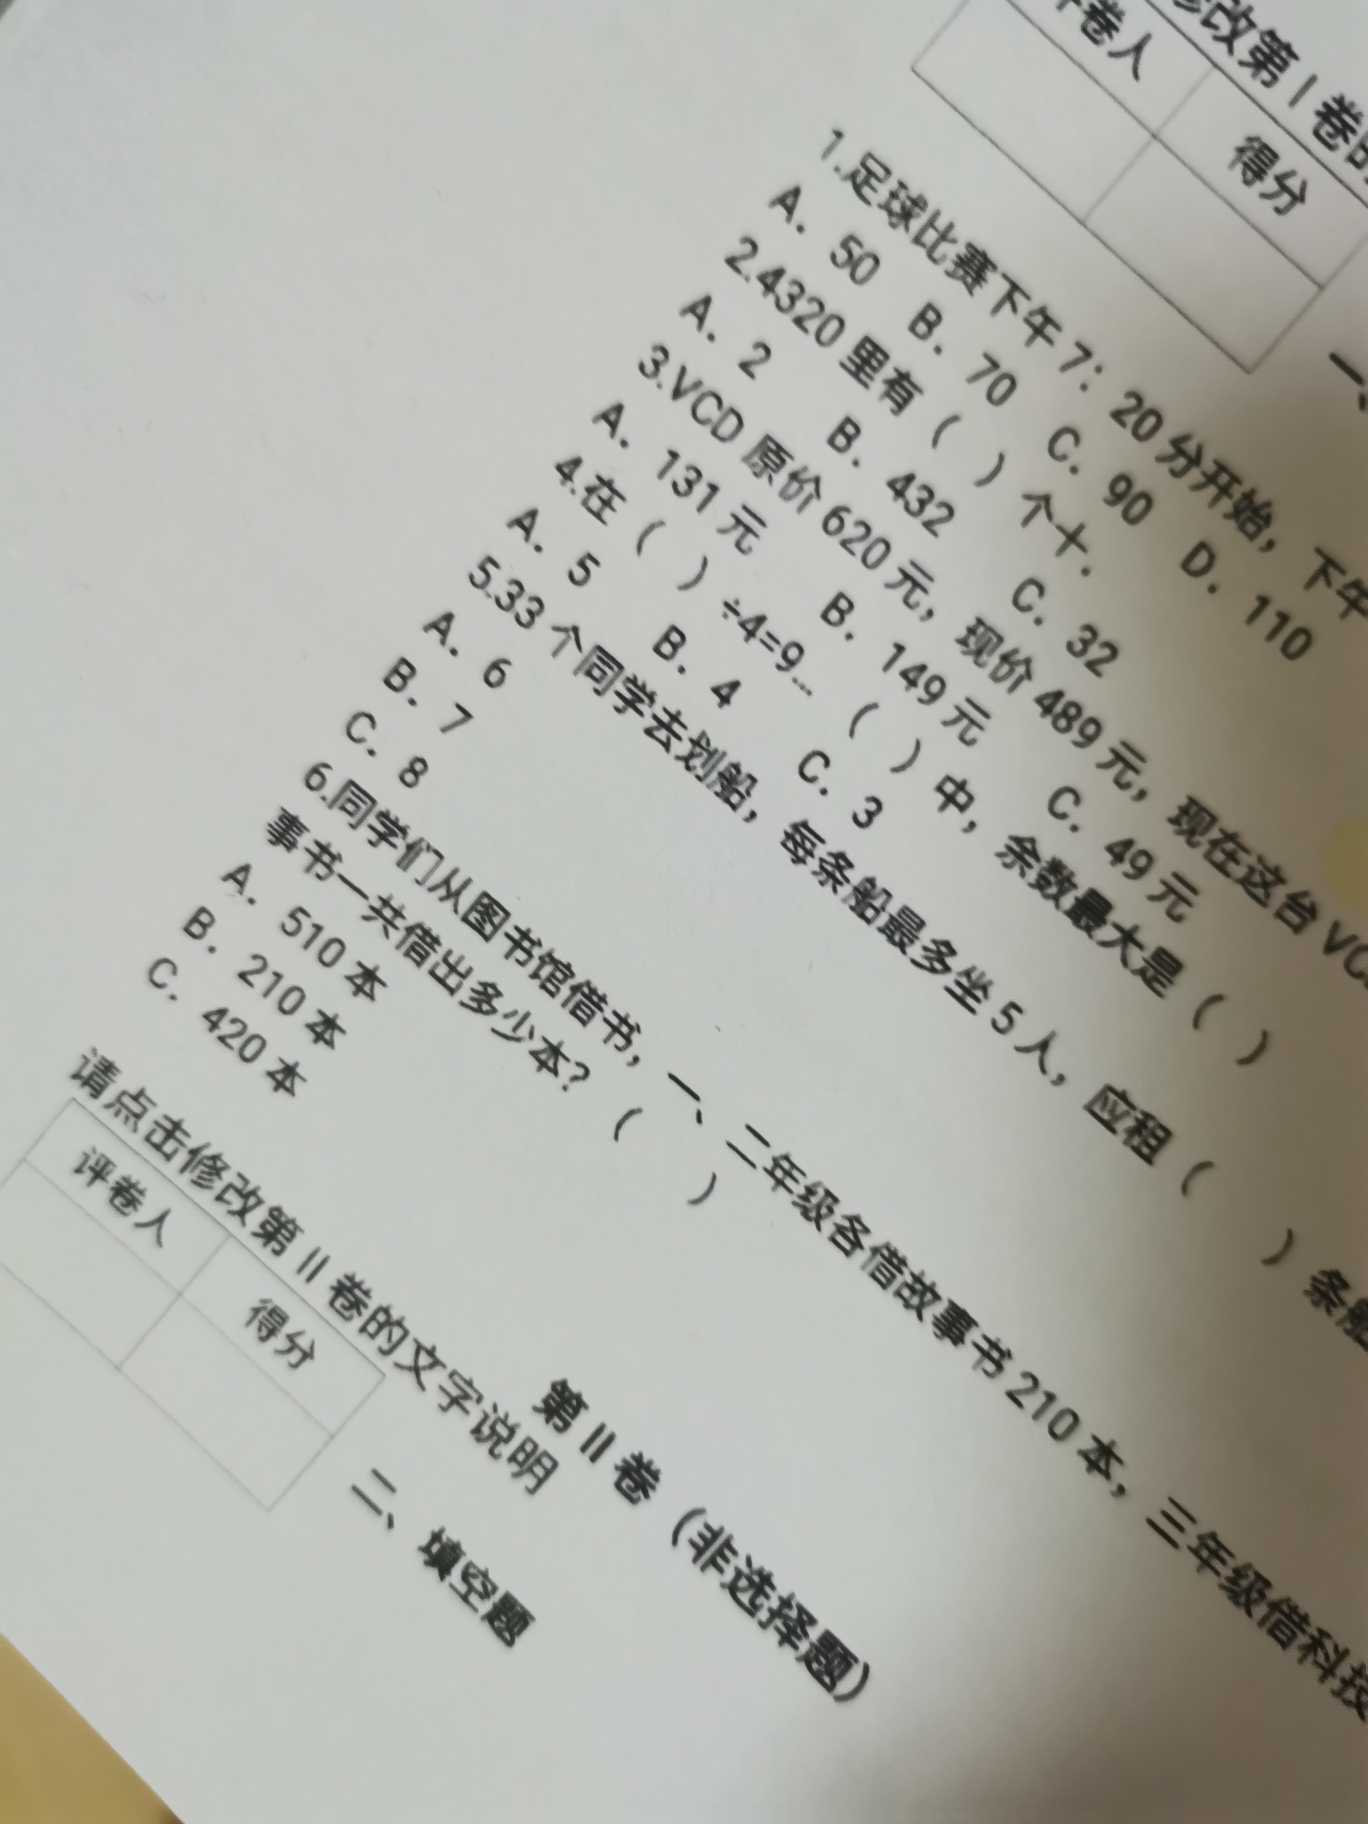 修改第 I 卷的
评卷人 得分
一、
1.足球比赛下午 7：20 分开始，下午
A．50 B．70 C．90 D．110
2.4320 里有（ ）个十.
A．2 B．432 C．32
3.VCD 原价 620 元，现价 489 元，现在这台 VC
A．131 元 B．149 元 C．49 元
4.在（ ）÷4=9…（ ）中，余数最大是（ ）
A．5 B．4 C．3
5.33 个同学去划船，每条船最多坐 5 人，应租（ ）条船
A．6
B．7
C．8
6.同学们从图书馆借书，一、二年级各借故事书 210 本，三年级借科技
事书一共借出多少本？（ ）
A．510 本
B．210 本
C．420 本
第 II 卷（非选择题）
请点击修改第 II 卷的文字说明
评卷人 得分
二、填空题